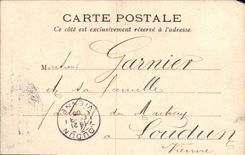 CARTE POSTALE
Ce côté est exclusivement réservé à l'adresse
Monsieur Garnier
et sa famille
du
Loudun
Vienne
LOUDUN
VIENNE